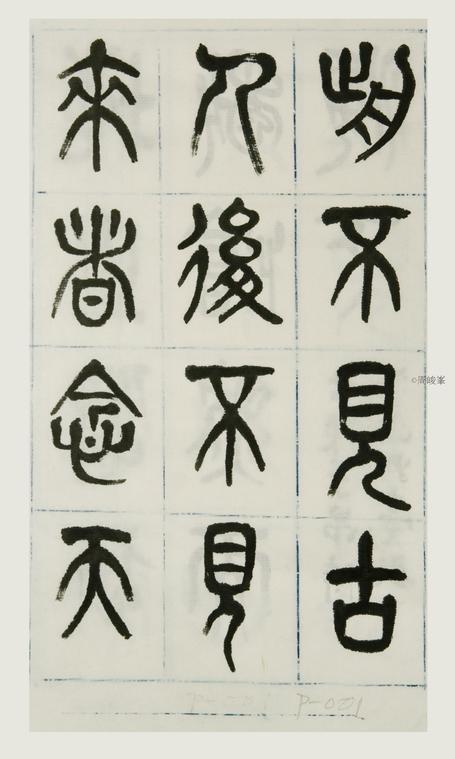 前不見古
人後不見
來者念天
©周峻峯